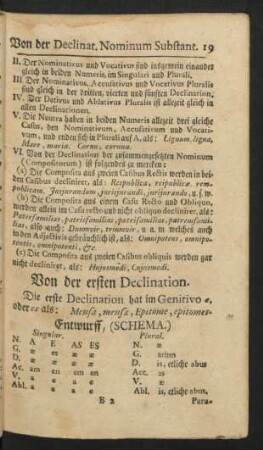 Von der Declinat. Nominum Substant. 19
II. Der Nominativus und Vocativus sind insgemein einander
gleich in beiden Numeris, im Singulari und Plurali.
III. Der Nominativus, Accusativus und Vocativus Pluralis
sind gleich in der dritten, vierten und fünfften Declination.
IV. Der Dativus und Ablativus Pluralis ist allezeit gleich in
allen Declinationen.
V. Die Neutra haben in beiden Numeris allezeit drei gleiche
Casus, den Nominativum, Accusativum und Vocati-
vum, und enden sich in Plurali auf A, als: Lignum, ligna,
Mare, maria. Cornu, cornua.
VI. Von der Declination der zusammengesetzten Nominum
(Compositorum) ist folgendes zu mercken:
(a) Die Composita aus zweien Casibus Rectis werden in bei-
den Casibus decliniret, als: Respublica, reipublicæ, rem-
publicam, Jusjurandum, jurisjurandi, jurijurando, u. s. w.
(b) Die Composita aus einem Casu Recto und Obliquo,
werden allein im Casu recto und nicht obliquo decliniret, als:
Paterfamilias, patrisfamilias, patrifamilias, patremfami-
lias, also auch: Duumvir, triumvir, u. a. m. welches auch
in den Adjectivis gebräuchlich ist, als: Omnipotens, omnipo-
tentis, omnipotenti, &c.
(c) Die Composita aus zweien Casibus obliquis werden gar
nicht decliniret, als: Hujusmodi, Cujusmodi.
Von der ersten Declination.
Die erste Declination hat im Genitivo æ,
oder es als: Mensa, mensæ, Epitome, epitomes.
Entwurff, (SCHEMA.)
Singulier. Plural.
N. A E AS ES N. æ
G. æ es æ æ G. arum
D. æ e æ æ D. is, etliche abus
Acc. am en am en Acc. as
V. a e a e V. æ
Abl. a e a e Abl. is, etliche abus.
B 2 Para-